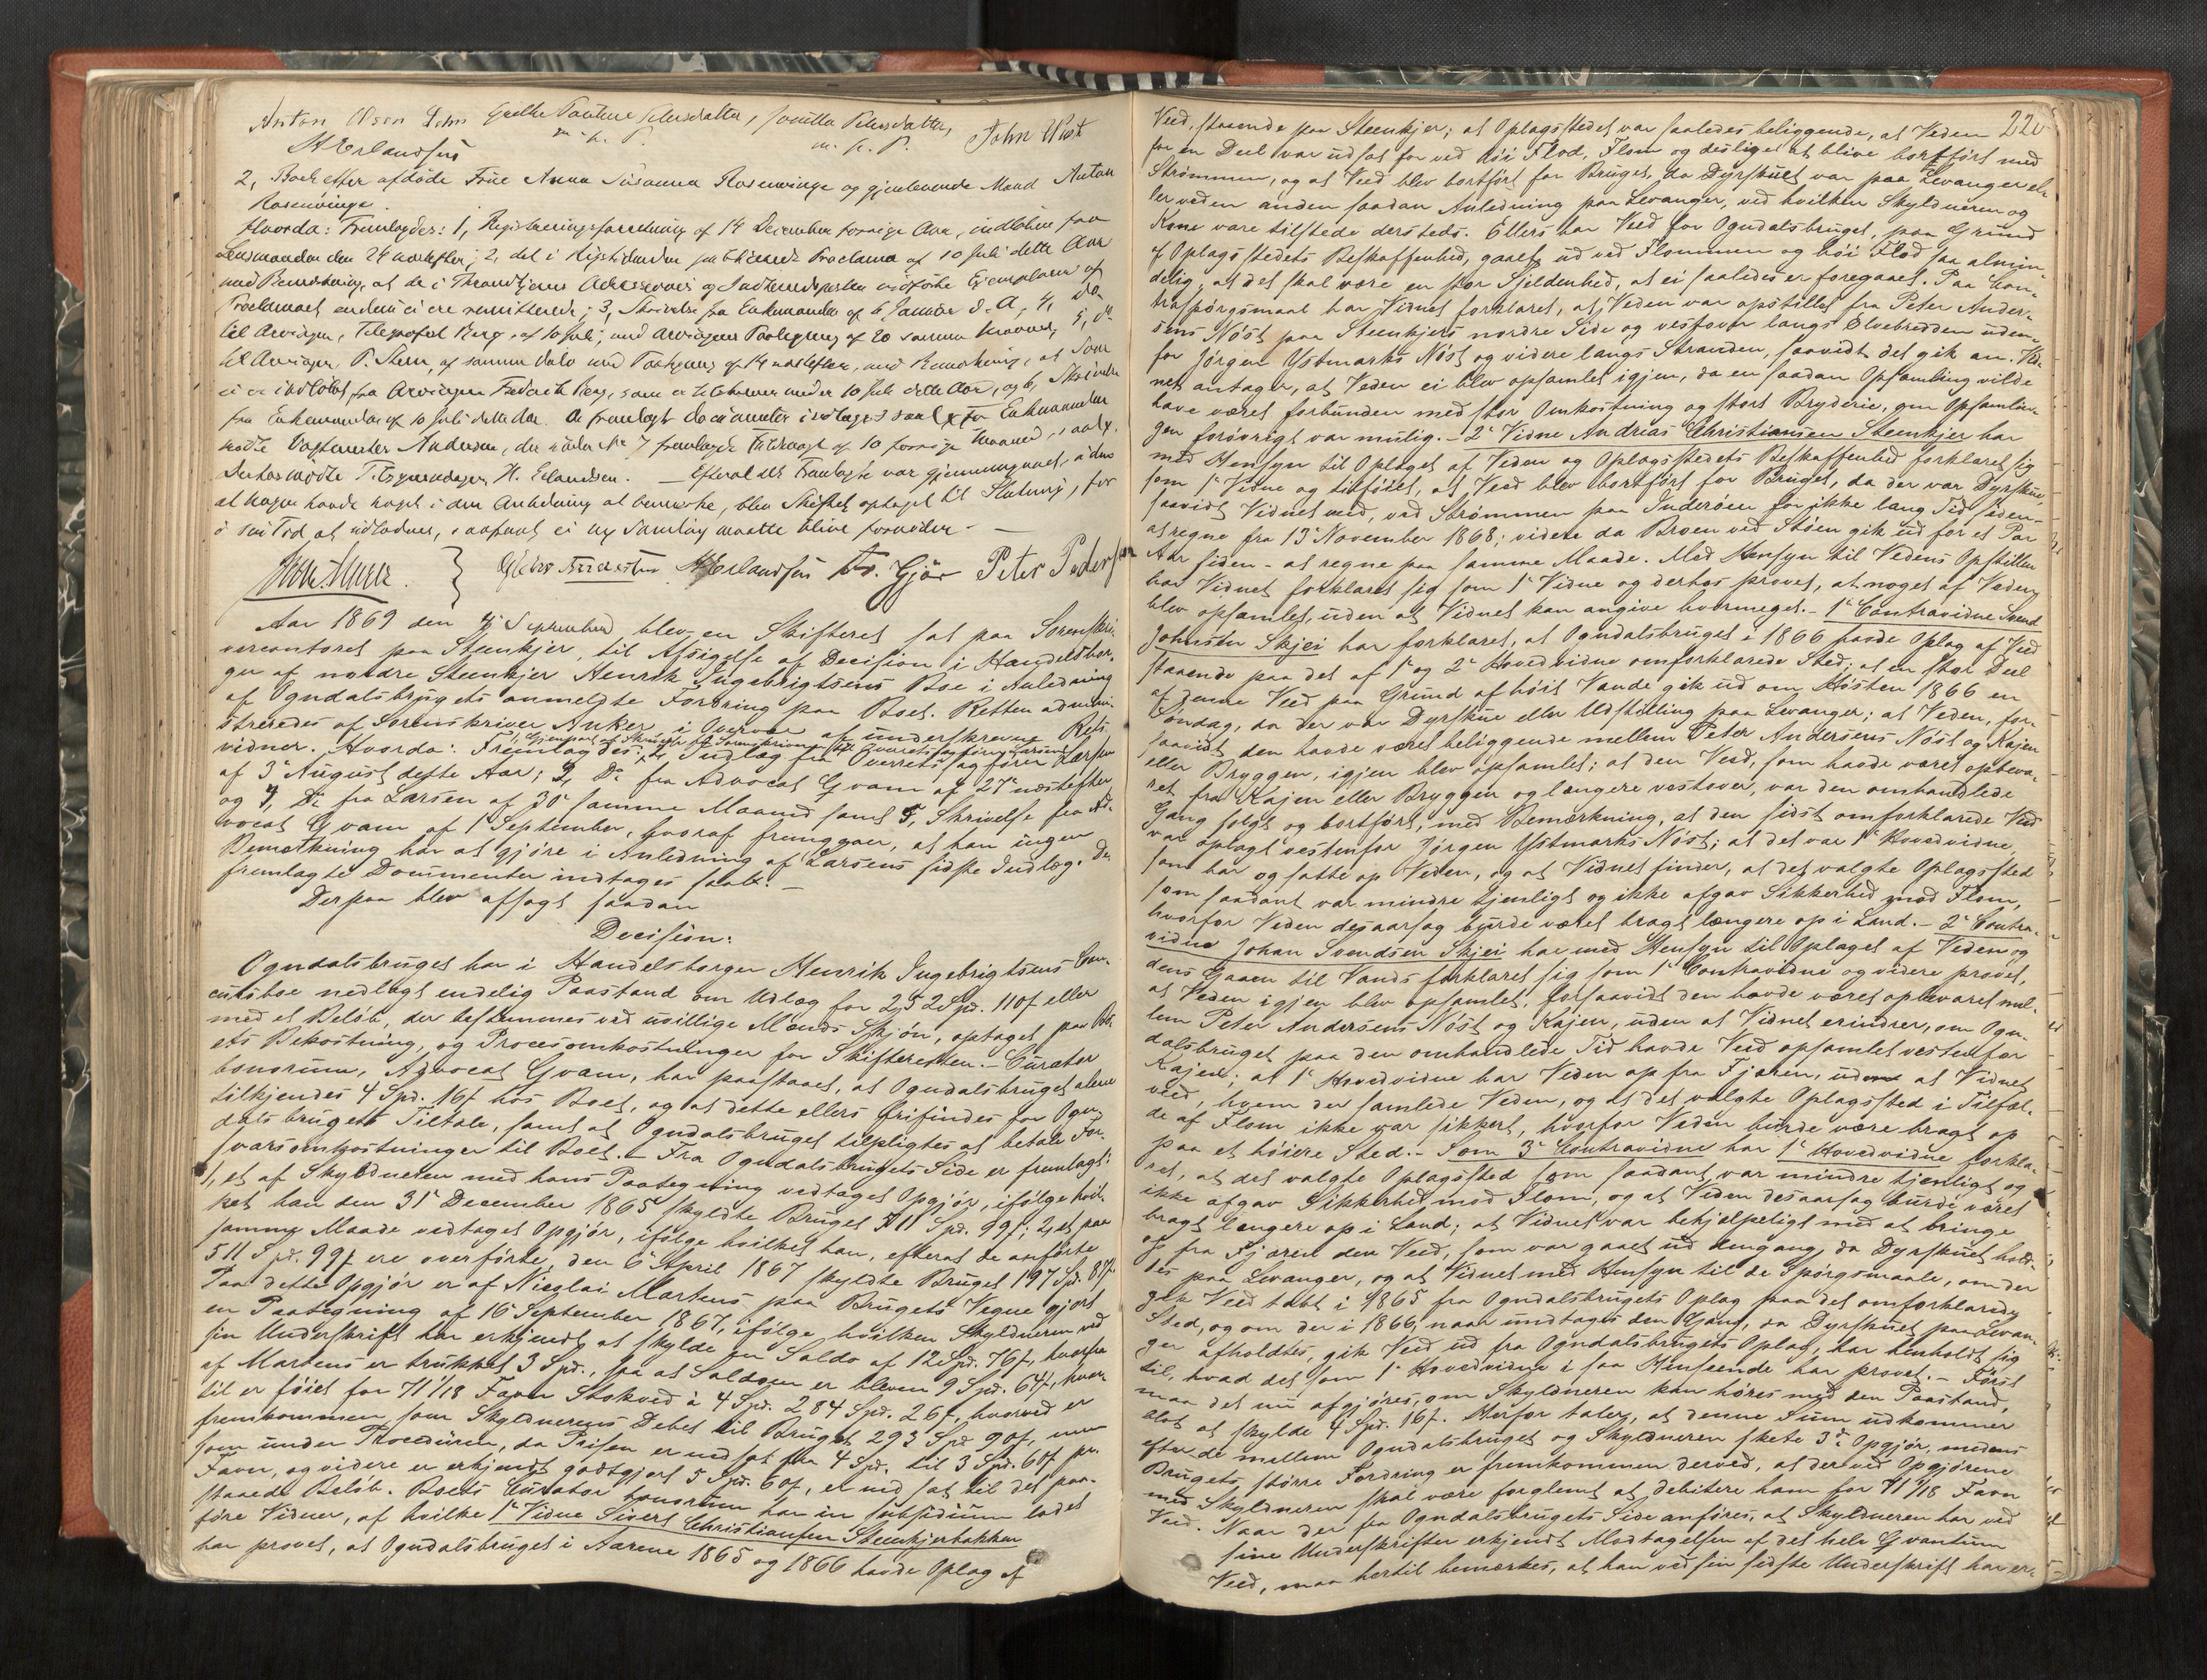 Anton Olsen Grethe Pauline Pedersdatter, Pedersdatter, John Wist
m. f. P. m. f. P.
H Erlandsen
2, Boet efter afdøde Frue Anna Susanna Rosenvinge og gjenlevende Mand Anton
Rosenvinge.
Hvorda: Fremlagdes: 1, Registreringsforretning af 14 December forrige Aar, indloben fra
Lensmanden den 24 næstefter; 2, det i Rigstidenden publicerede Proclama af 10 Juli dette Aar
med Bemærkning, at de i Throndhjems Adresseavis og Indherredsposten indførte Exemplarer af
Proclamaet endnu ei ere remitterede; 3, Skrivelse fra Enkemanden af 6 Januar d. A., 4, do
til Arvingen, Telegrafist Berg, af 10 Juli, med Arvingens Paategning af 20 samme Maaned, 5, do
til Arvingen, P. Stern, af samme Dato med Paategning af 14 næstefter, med Bemærkning, at Svar
ei er indløbet fra Arvingen Frederik Berg, som er tilskreven under 10 Juli dette Aar, og 6, Skrivelse
fra Enkemanden af 10 Juli dette Aar. De fremlagte Documenter indtages saal. For Enkemanden
mødte Vagtmester Andersen, der under No 7 fremlagde Fuldmagt af 10 forrige Maaned, saal.
Derhos mødte T. H. Erlandsen. — Efterat det Fremlagte var gjennemgaaet, uden
at nogen havde noget i den Anledning at bemærke, blev Skiftet optaget til Slutning, for
i sin Tid at udloddes, saafremt ei ny Samling maatte blive fornøden. —
Andersen H Erlandsen Gjør Peter Pedersen
Aar 1869 den September blev en Skifteret sat paa Sorenskri-
vercontoret paa Steenkjer, til Afsigelse af Decision i Handelsbor-
ger af nordre Steenkjer Henrik Ingebrigtsens Boe i Anledning
af Ogndalsbrugets anmeldte Fordring paa Boet. Retten admini-
streredes af Sorenskriver Anker i Overvær af underskrevne Rets-
vidner. Hvorda: Fremlagdes: Indlæg fra Overretssagfører Larsen
af 3' August dette Aar; 3, Do fra Advocat Gram af 27' næstefter
og 4, Do fra Larsen af 30' samme Maaned samt 5, Skrivelse fra Ad-
vocat Gram af 1' September, hvoraf fremgaaer, at han ingen
Bemærkning har at gjøre i Anledning af Larsens sidste Indlæg. De
fremlagte Documenter indtages saal. —
Derpaa blev afsagt saadan
Decision:
Ogndalsbruget har i Handelsborger Henrik Ingebrigtsens Con-
cursboe nedlagt endelig Paastand om Udlæg for 252 Spd. 110 f eller
med et Beløb, der bestemmes ved uvillige Mænds Skjøn, optaget paa Bo-
ets Bekostning, og Procesomkostninger for Skifteretten. — Curator
bonorum, Advocat Gram, har paastaaet, at Ogndalsbruget alene
tilkjendes 4 Spd. 16 f hos Boet, og at dette ellers frifindes for Ogn-
dalsbrugets Tiltale, samt at Ogndalsbruget tilpligtes at betale For-
svarsomkostninger til Boet. — Fra Ogndalsbrugets Side er fremlagt:
1, et af Skyldneren med hans Paategning vedtaget Opgjør, ifølge hvil-
ket han den 31' December 1865 skyldte Bruget 511 Spd. 99 f; 2, et paa
samme Maade vedtaget Opgjør, ifølge hvilket han, efterat de anførte
511 Spd. 99 f ere overførte, den 6' April 1867 skyldte Bruget 197 Spd. 81 f.
Paa dette Opgjør er af Nicolai Martens paa Brugets Vegne gjort
en Paategning af 16' September 1867, ifølge hvilken Skyldneren ved
sin Underskrift har erkjendt at skylde en Saldo af 12 Spd. 76 f, hvorfra
af Martens er trukket 3 Spd., saa at Saldoen er bleven 9 Spd. 64 f, hvor-
til er føiet for 71 1/18 Favn Stokved à 4 Spd. 284 Spd. 26 f, hvorved er
fremkommen som Skyldnerens Debet til Bruget 293 Spd 90 f, men
som under Proceduren, da Prisen er nedsat fra 4 Spd. til 3 Spd. 60 f pr.
Favn, og videre er erkjendt godtgjort 5 Spd. 60 f, er nedsat til det paa-
staaede Beløb. Boets Curator bonorum har in subsidium ladet
føre Vidner, af hvilke 1' Vidne Sivert Christiansen Steenkjerbakken
har provet, at Ogndalsbruget i Aarene 1865 og 1866 havde Oplag af
220
Veed, staaende paa Steenkjer; at Oplagsstedet var saaledes beliggende, at Veden
for en Deel var udsat for ved høi Flod, Flom og deslige at blive bortført med
Strømmen, og at Veed blev bortført for Bruget, da Dyrskuet var paa Levanger el-
ler ved en anden saadan Anledning paa Levanger, ved hvilken Skyldneren og
Kone vare tilstede dersteds. Ellers har Veed for Ogndalsbruget, paa Grund
af Oplagsstedets Beskaffenhed, gaaet ud ved Flommen og høi Flod saa almin-
delig, at det skal være en stor Sjeldenhed, at ei saaledes er foregaaet. Paa Con-
traspørgsmaal har Vidnet forklaret, at Veden var opstillet fra Peter Ander-
sens Nøst paa Steenkjers nordre Side og vestover langs Elvebredden uden-
for Jørgen Ystmarks Nøst og videre langs Stranden, saavidt det gik an. Vid-
net antager, at Veden ei blev opsamlet igjen, da en saadan Opsamling vilde
have været forbunden med stor Omkostning og stort Bryderie, om Opsamlin-
gen forøvrigt var mulig. — 2' Vidne Andreas Christiansen Steenkjer har
med Hensyn til Oplaget af Veden og Oplagsstedets Beskaffenhed forklaret sig
som 1' Vidne og tilføiet, at Veed blev bortført for Bruget, da der var Dyrskue,
saavidt Vidnet veed, ved Strømmen paa Inderøen for ikke lang Tid siden —
at regne fra 13' November 1868; videre da Broen ved Støen gik ud for et Par
Aar siden — at regne paa samme Maade. Med Hensyn til Vedens Opstillen
har Vidnet forklaret sig som 1' Vidne og derhos provet, at noget af Veden
blev opsamlet, uden at Vidnet kan angive hvormeget. — 1' Contravidne Svend
Johnsen Skjei har forklaret, at Ogndalsbruget i 1866 havde Oplag af Veed
staaende paa det af 1' og 2' Hovedvidne omforklarede Sted; at en stor Deel
af denne Veed paa Grund af høit Vande gik ud om Høsten 1866 en
Søndag, da der var Dyrskue eller Udstilling paa Levanger; at Veden, for-
saavidt den havde været beliggende mellem Peter Andersens Nøst og Kajen
eller Bryggen, igjen blev opsamlet; at den Veed, som havde været opbeva-
ret fra Kajen eller Bryggen og længere vestover, var den omhandlede
Gang solgt og bortført, med Bemærkning, at den sidst omforklarede Veed
var oplagt vestenfor Jørgen Ystmarks Nøst; at det var 1' Hovedvidne,
som har og satte op Veden, og at Vidnet finder, at det valgte Oplagssted
som saadant var mindre tjenligt og ikke afgav Sikkerhed mod Flom,
hvorfor Veden desaarsag burde været bragt længere op i Land. — 2' Contra-
vidne Johan Svendsen Skjei har med Hensyn til Oplaget af Veden og
dens Gaaen til Vands forklaret sig som 1' Contravidne og videre provet,
at Veden igjen blev opsamlet, forsaavidt den havde været opbevaret mel-
lem Peter Andersens Nøst og Kajen, uden at Vidnet erindrer, om Ogn-
dalsbruget paa den omhandlede Tid havde Veed opsamlet vestenfor
Kajen; at 1' Hovedvidne har Veden op fra Fjæren, uden at Vidnet
veed, hvem der samlede Veden, og at det valgte Oplagssted i Tilfæl-
de af Flom ikke var sikkert, hvorfor Veden burde være bragt op
paa et høiere Sted. — Som 3' Contravidne har 1' Hovedvidne forkla-
ret, at det valgte Oplagssted som saadant var mindre tjenligt og
ikke afgav Sikkerhed mod Flom, og at Veden desaarsag burde været
bragt længere op i Land; at Vidnet var behjælpeligt med at bringe
op fra Fjæren den Veed, som var gaaet ud dengang, da Dyrskuet hold-
tes paa Levanger, og at Vidnet med Hensyn til de Spørgsmaale, om der
gik Veed tabt i 1865 fra Ogndalsbrugets Oplag paa det omforklarede
Sted, og om der i 1866, naar undtages den Gang, da Dyrskuet paa Levan-
ger afholdtes, gik Veed ud fra Ogndalsbrugets Oplag, har henholdt sig
til, hvad det som 1' Hovedvidne i saa Henseende har provet. — Først
maa det nu afgjøres, om Skyldneren kan høres med den Paastand,
blot at skylde 4 Spd. 16 f. Herfor taler, at denne Sum udkommer
efter de mellem Ogndalsbruget og Skyldneren skete 3de Opgjør, medens
Brugets større Fordring er fremkommen derved, at der ved Opgjørene
med Skyldneren skal være forglemt at debitere ham for 71 1/18 Favn
Veed. Naar der fra Ogndalsbrugets Side anføres, at Skyldneren har ved
sine Underskrifter erkjendt Modtagelsen af det hele Qvantum
Veed, maa hertil bemærkes, at han ved sin sidste Underskrift har er-